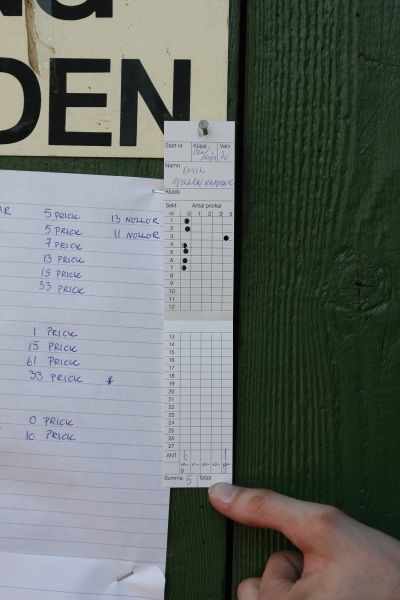 DEN
Start nr Klass Varv
Namn EMIL
GYLLENHAMMAR
Klubb
Sekt. Antal prickar
nr 0 1 2 3 5
1
2
3
4
5
6
7
8
9
10
11
12
13
14
15
16
17
18
19
20
21
22
23
24
25
26
27
ANT 6 1
Summa 5 Totalt
AR 5 PRICK 13 NOLLOR
5 PRICK 11 NOLLOR
7 PRICK
13 PRICK
15 PRICK
33 PRICK
1 PRICK
15 PRICK
61 PRICK
33 PRICK
0 PRICK
10 PRICK